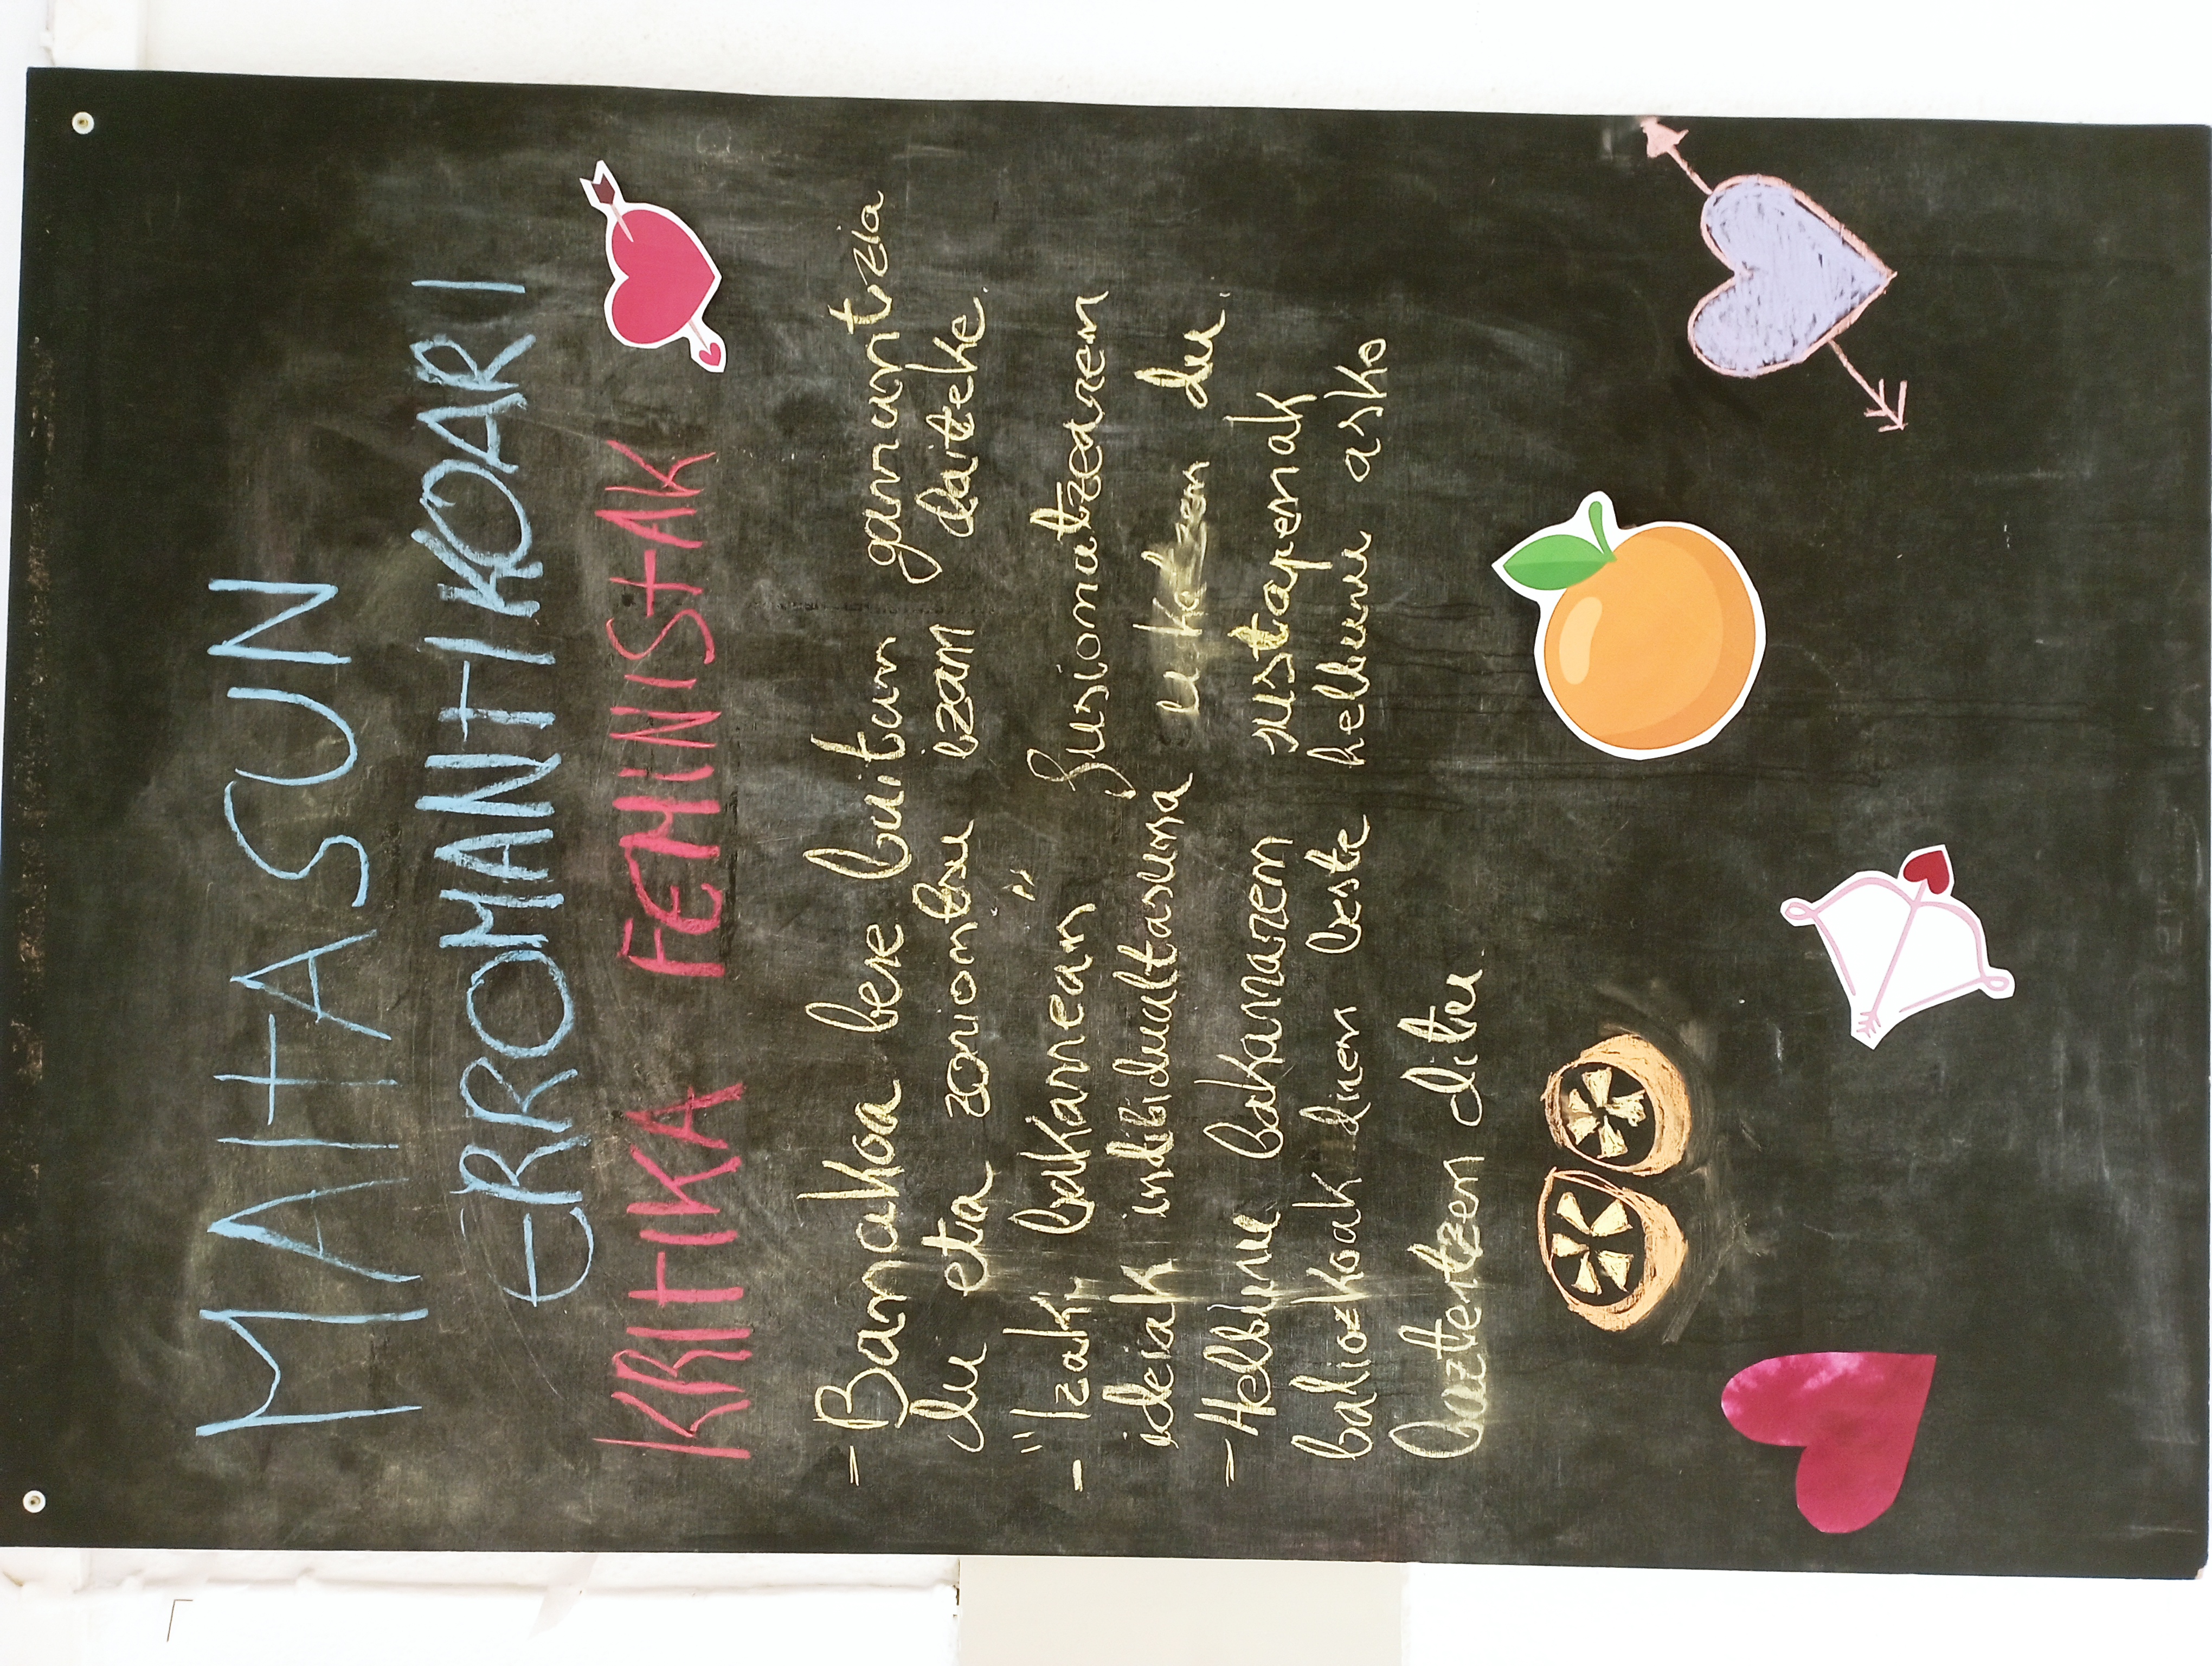 MAITASUN
ERROMANTIKOARI
KRITIKA FEMINISTAK
- Banakoa bere baitan garrantzia
du eta zoriontsu izan daiteke.
- "Izaki bakarrean" fusionatzearen
ideiak indibidualtasuna ukatzen du.
- Helburu bakarraren sustapenak
baliozkoak diren beste helburu asko
baztertzen ditu.